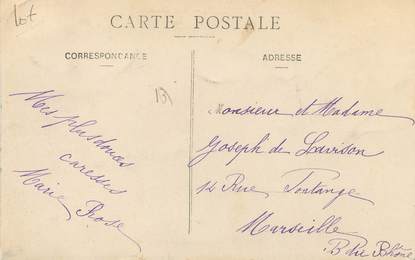 Lot
CARTE POSTALE
CORRESPONDANCE
ADRESSE
131
Mes plus douces
caresses
Marie Rose
Monsieur et Madame
Joseph de Lavison
14 Rue Fortange
Marseille
B du Rhône